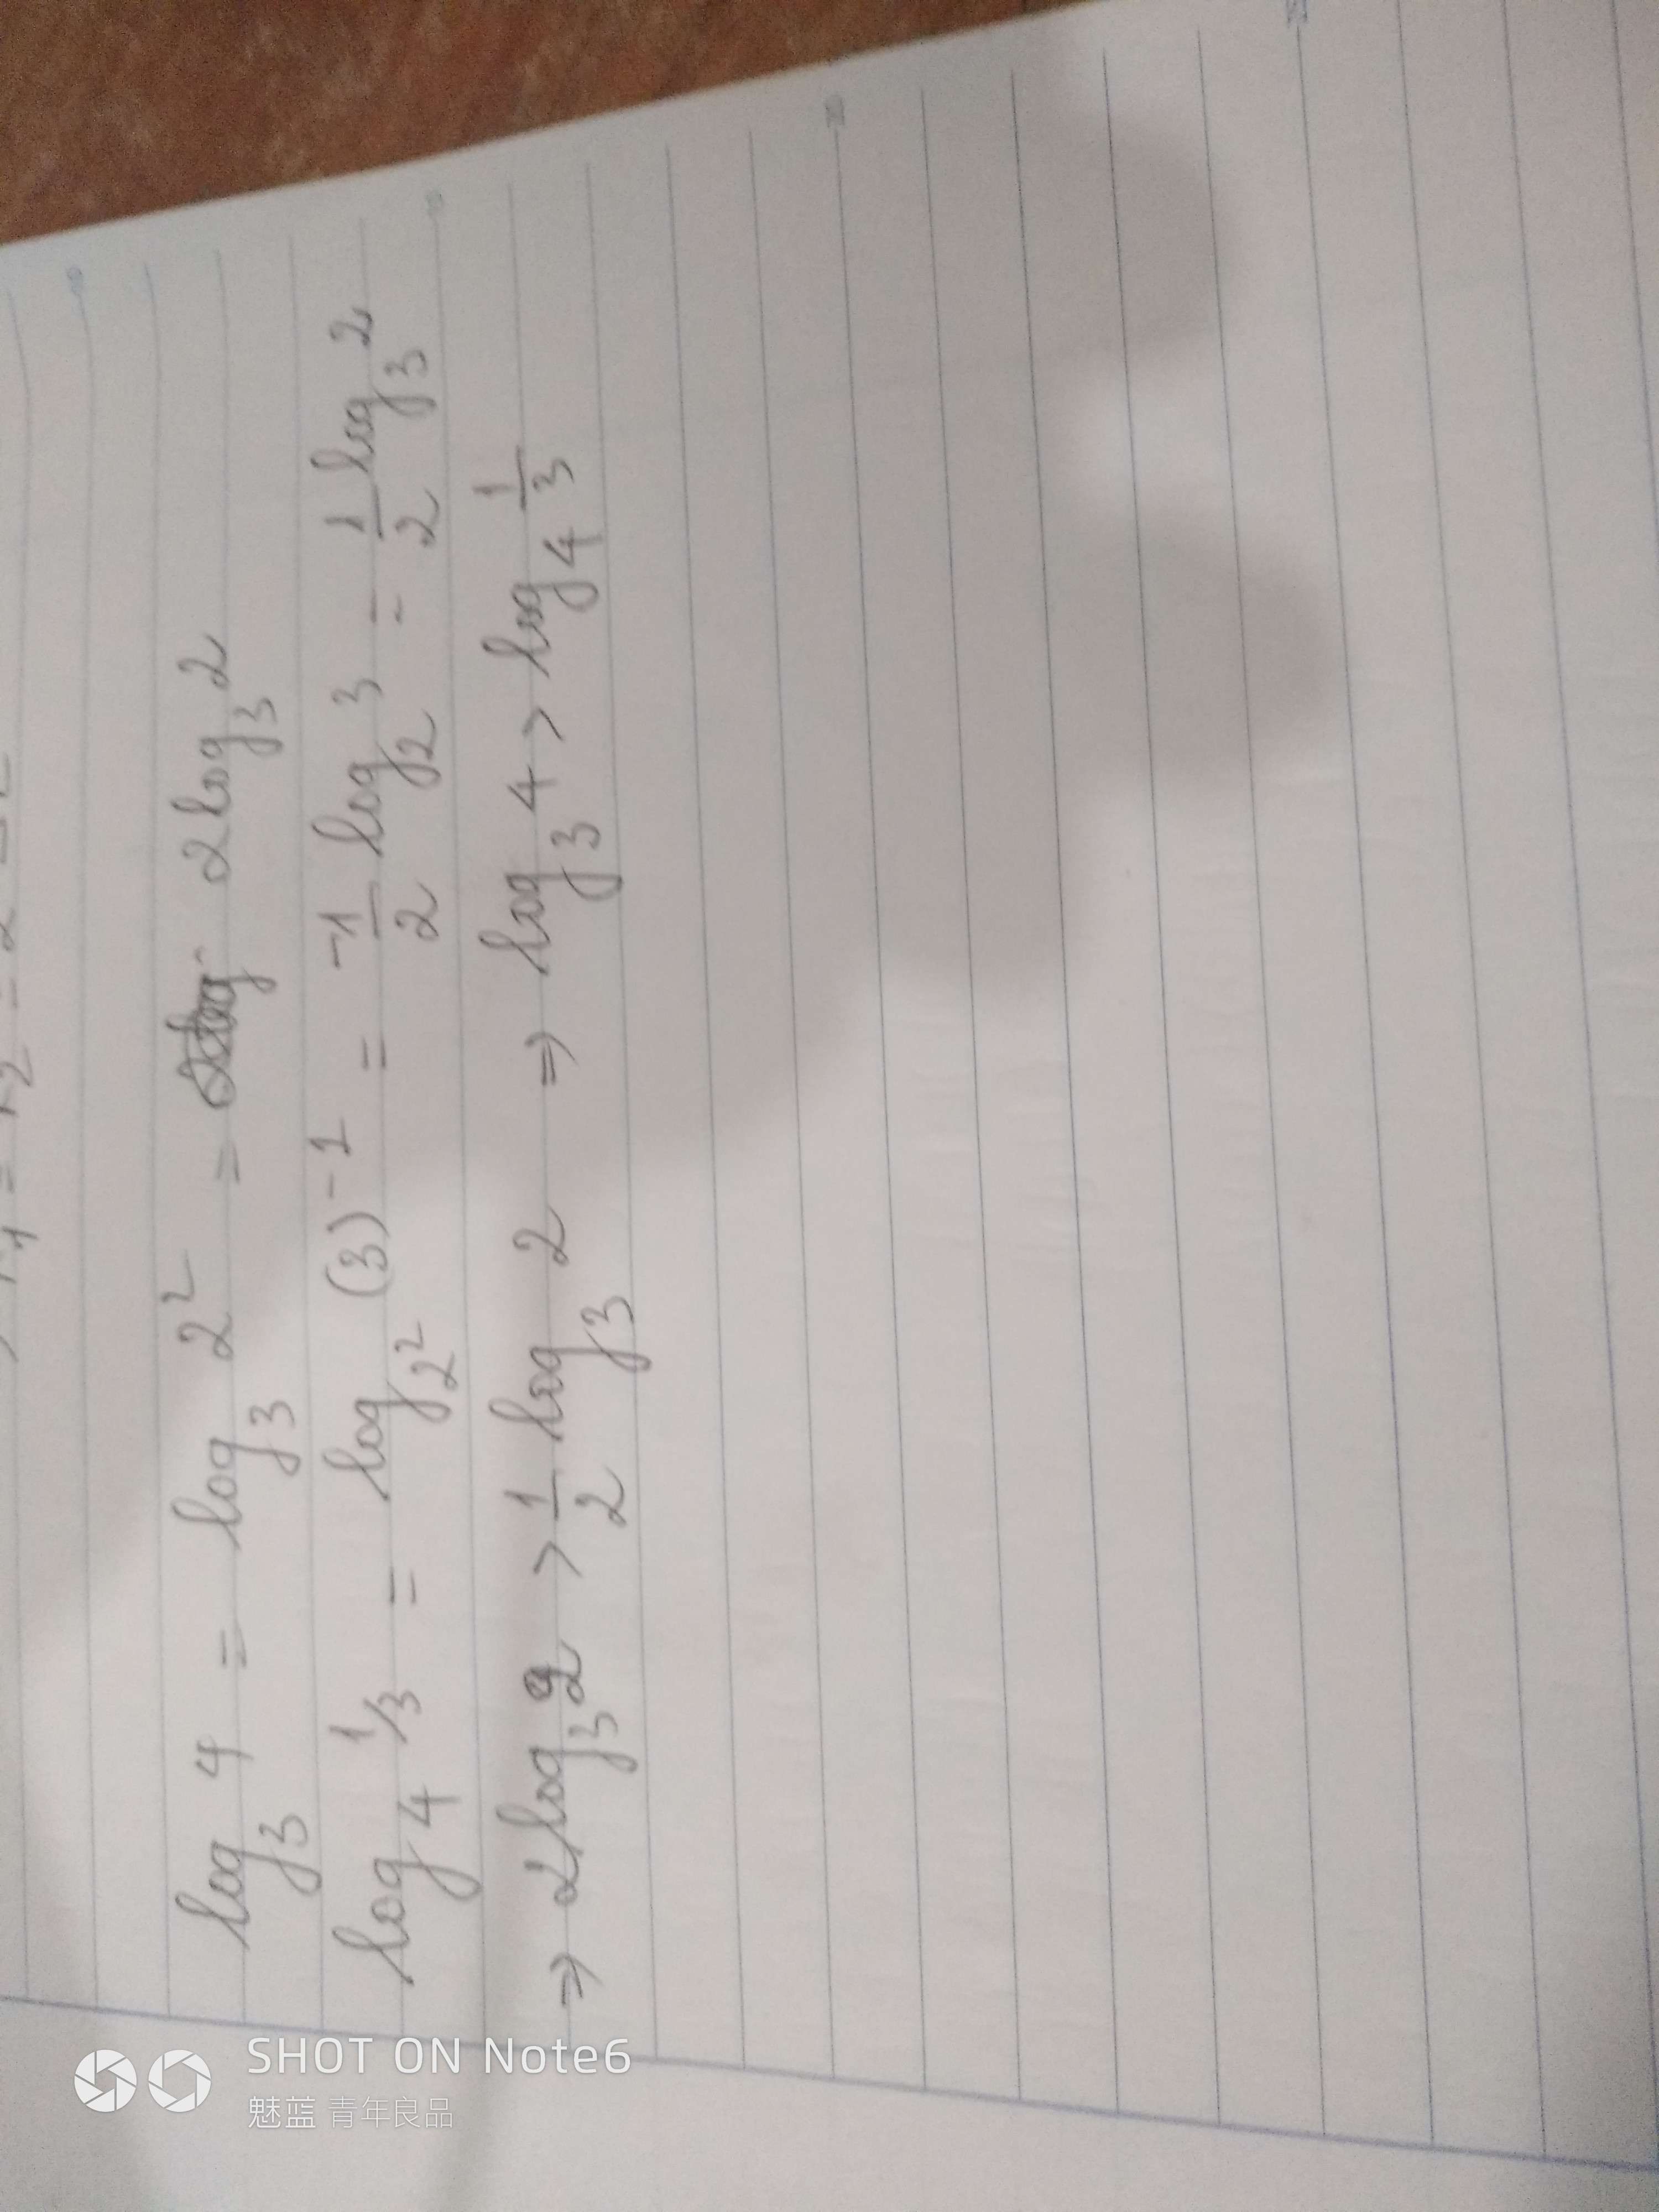 log₃ 4 = log₃ 2² = 2log₃ 2
log₄ 1/3 = log₂² (3)⁻¹ = -1/2 log₂ 3 = 1/2 log₃ 2
⇒ 2log₃ 2 > 1/2 log₃ 2 ⇒ log₃ 4 > log₄ 1/3
SHOT ON Note6
魅蓝 青年良品